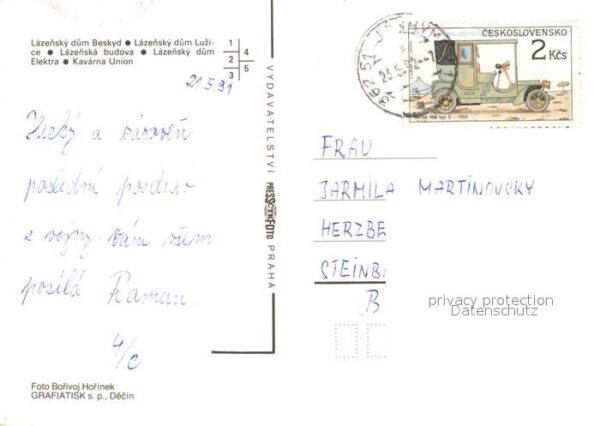 Lázeňský dům Beskyd ● Lázeňský dům Luži-
ce ● Lázeňská budova ● Lázeňský dům
Elektra ● Kavárna Union
1
2
3
4
5
21.5.91
Hezký a zároveň
poslední pozdrav
z vojny Vám všem
posílá Raman.
Foto Bořivoj Hořínek
GRAFIATISK s. p., Děčín
VYDAVATELSTVÍ PRESSFOTO PRAHA
ČESKOSLOVENSKO
2 Kčs
NW typ E - 1905
362 51
FRAU
JARMILA MARTINOVSKY
HERZBE
STEINB
B
privacy protection
Datenschutz